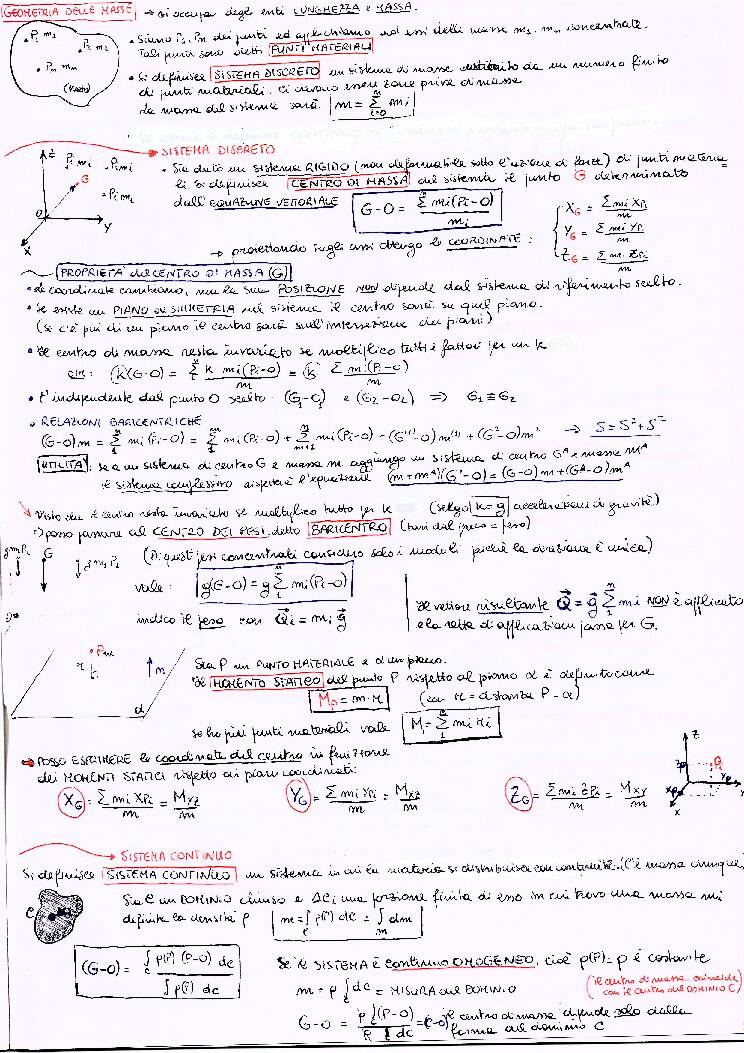 GEOMETRIA DELLE MASSE → si occupa degli enti LUNGHEZZA e MASSA.
P₁ m₁
P₂ m₂
Pₙ mₙ
(vuoto)
• Siano P₁, Pₙ dei punti ed applichiamo ad essi delle masse m₁, mₙ concentrate.
Tali punti sono detti PUNTI MATERIALI
• Si definisce SISTEMA DISCRETO un sistema di masse costituito da un numero finito
di punti materiali. Ci devono essere zone prive di massa
La massa del sistema sarà m = Σ mi
→ SISTEMA DISCRETO
• Sia dato un sistema RIGIDO (non deformabile sotto l'azione di forze) di punti materia
li si definisce CENTRO DI MASSA del sistema il punto G determinato
dall'EQUAZIONE VETTORIALE G-O = Σ mi(Pi-O) / m
→ proiettando sugli assi ottengo le COORDINATE:
XG = Σ mi XPi / m
YG = Σ mi YPi / m
ZG = Σ mi ZPi / m
PROPRIETÀ del CENTRO DI MASSA (G)
• Le coordinate cambiano, ma la sua POSIZIONE NON dipende dal sistema di riferimento scelto.
• Se esiste un PIANO DI SIMMETRIA nel sistema il centro sarà su quel piano.
(se c'è più di un piano il centro sarà sull'intersezione dei piani)
• Il centro di massa resta invariato se moltiplico tutti i fattori per un k
k(G-O) = Σ k mi(Pi-O) / m = k Σ mi(Pi-O) / m
• È indipendente dal punto O scelto. (G₁-O₁) e (G₂-O₂) ⇒ G₁≡G₂
• RELAZIONI BARICENTRICHE
(G-O)m = Σ mi(Pi-O) = Σ mi(Pi-O) + Σ mi(Pi-O)
UTILITÀ: se a un sistema di centro G e massa m aggiungo un sistema di centro Gᴬ e massa mᴬ
il sistema complessivo rispetterà l'equazione (m+mᴬ)(G'-O) = (G-O)m+(Gᴬ-O)mᴬ
Visto che il centro resta invariato se moltiplico tutto per k (scelgo k=g accelerazione di gravità)
→ posso passare al CENTRO DEI PESI, detto BARICENTRO
G
(Di questi pesi concentrati considero solo i moduli perché la direzione è unica)
vale: g(G-O) = g Σ mi(Pi-O)
indico il peso con Qi = mi g
Il vettore risultante Q = g Σ mi NON è applicato
e la retta di applicazione passa per G.
Sia P un PUNTO MATERIALE e α un piano.
Il MOMENTO STATICO del punto P rispetto al piano α è definito come
Mp = m·r (con r = distanza P-α)
se ho più punti materiali vale M = Σ mi ri
→ POSSO ESPRIMERE le coordinate del centro in funzione
dei MOMENTI STATICI rispetto ai piani coordinati:
XG = Σ mi XPi / m = Myz / m
YG = Σ mi YPi / m = Mxz / m
ZG = Σ mi ZPi / m = Mxy / m
→ SISTEMA CONTINUO
Si definisce SISTEMA CONTINUO un sistema in cui la materia si distribuisce con continuità. (C'è massa ovunque)
Sia C un DOMINIO chiuso e ΔCi una porzione finita di esso in cui trovo una massa mi
definita la densità ρ m = ∫ ρ(P) dc = ∫ dm
(G-O) = ∫ ρ(P) (P-O) dc / ∫ ρ(P) dc
Se il SISTEMA È continuo OMOGENEO, cioè ρ(P) = ρ è costante
m = ρ ∫ dc = MISURA del DOMINIO
(il centro di massa coincide
con il centro del DOMINIO C)
G-O = ρ ∫ (P-O) / ρ ∫ dc
il centro di massa dipende solo dalla
forma del dominio C